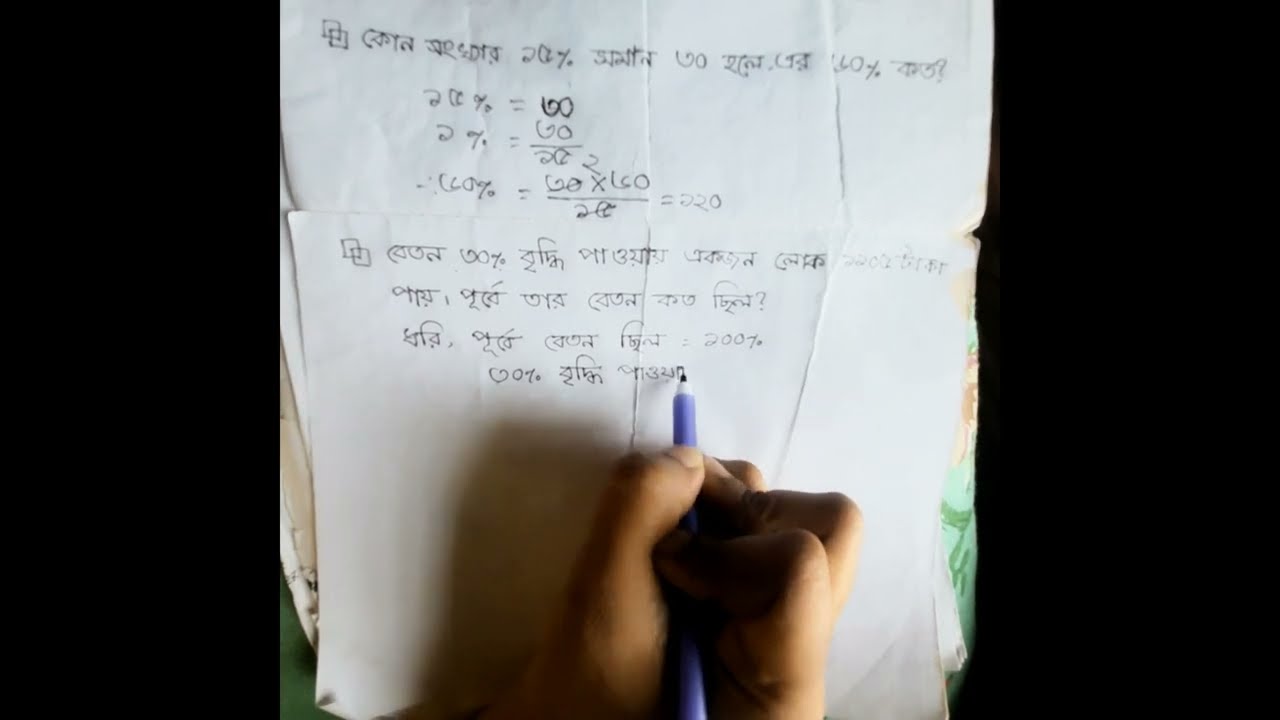 কোন সংখ্যার ১৫% সমান ৩০ হলে, এর ৬০% কত?
১৫% = ৩০
১% = ৩০/১৫
∴ ৬০% = ৩০ X ৬০/১৫ = ১২০
২
বেতন ৩০% বৃদ্ধি পাওয়ায় একজন লোক টাকা
পায়, পূর্বে তার বেতন কত ছিল?
ধরি, পূর্বে বেতন ছিল = ১০০%
৩০% বৃদ্ধি পাওয়া